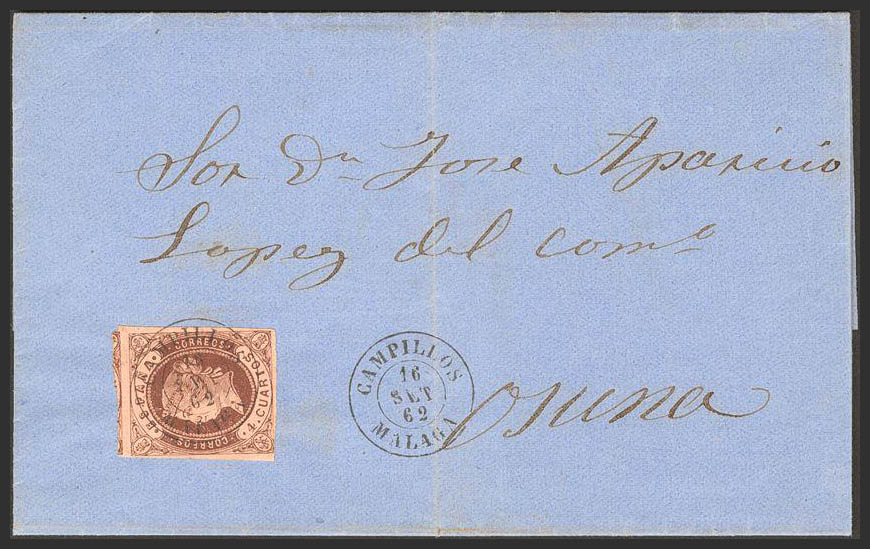 Sor Dn Jose Aparicio
Lopez del como
Osuna
CAMPILLOS
16
SET
62
MALAGA
CORREOS
ESPAÑA
4 CUARTOS
CORREOS